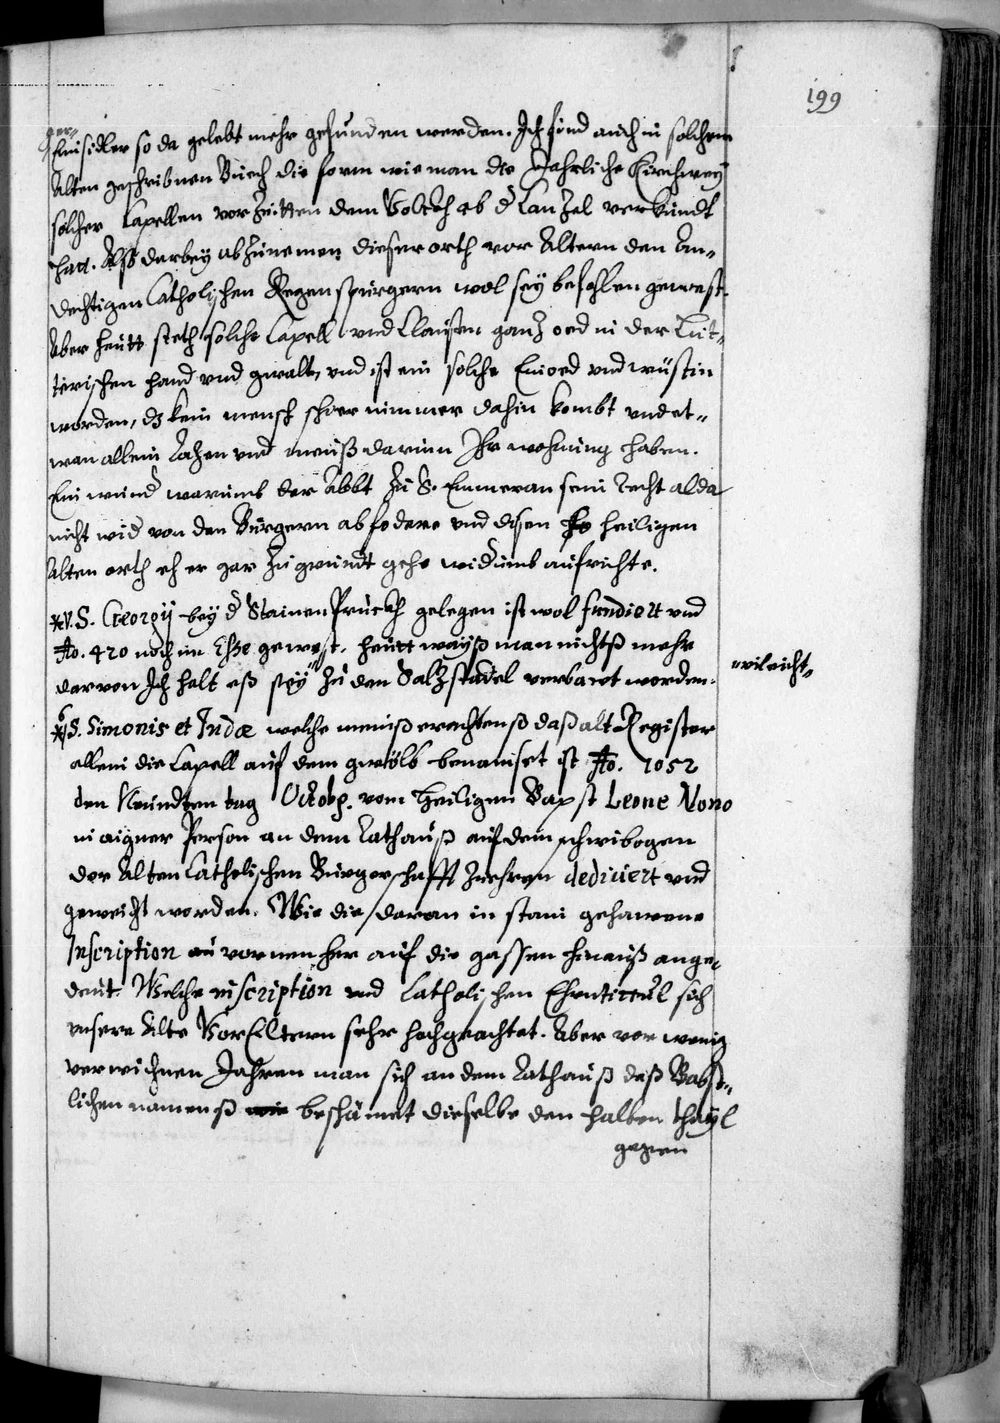 199
Einsidler so da gelebt mehr gefunden werden. Ich find auch in solchem
Alten geschribnen Buech die form wie man die Jahrliche Kirchwey
solcher Capellen vor Zeitten dem Volckh ab d Canzel verkündt
hat. Alß darbey abzunemen dieser orth vor Altern den An-
dechtigen Catholischen Regenspurgern wol sey befohlen gewest.
Aber heütt steth solche Capell und Clausen ganz oed in der Lut-
terischen hand und gwalt, und ist ein solche Einoed und wüstin
worden, dz kein mensch schier nimmer dahin kombt und et-
wan allein Kazen und meuß darinn Ihr wohnung haben.
Ein wund warumb der Abbt zu S. Emmeran sein Recht alda
nicht wid von den Burgern abfodere und disen heiligen
Alten orth eh er gar zu grundt gehe widumb aufrichte.
V. S. Georgij bey d Stainen Pruckh gelegen ist wol fundiert und
Ao. 420 noch in Esse gewest. heütt wayß man nichtß mehr
darvon Ich halt eß sey zu den Salzstadel verbawt worden.
"vileicht"
6 S. Simonis et Judæ welche meniß erachtenß daß alt Register
allein die Capell auf dem gwölb benamset ist Ao. 1052
den Neündten tag Octobr. vom Heiligen Bapst Leone Nono
in aigner Person an dem Rathauß auf dem schwibogen
der Alten Catholischen Burgerschafft zu ehren dediciert und
geweicht worden. Wie die daran in stain gehawene
Inscription vornen her auf die gassen hinauß ange-
deut. Welche inscription und Catholischen Ehrntittul sich
unsere Alte VorEltern sehr hochgeachtet. Aber vor wenig
verwichnen Jahren man sich an dem Rathauß deß Babst-
lichen namenß beschämet dieselbe den halben thayl
gegen